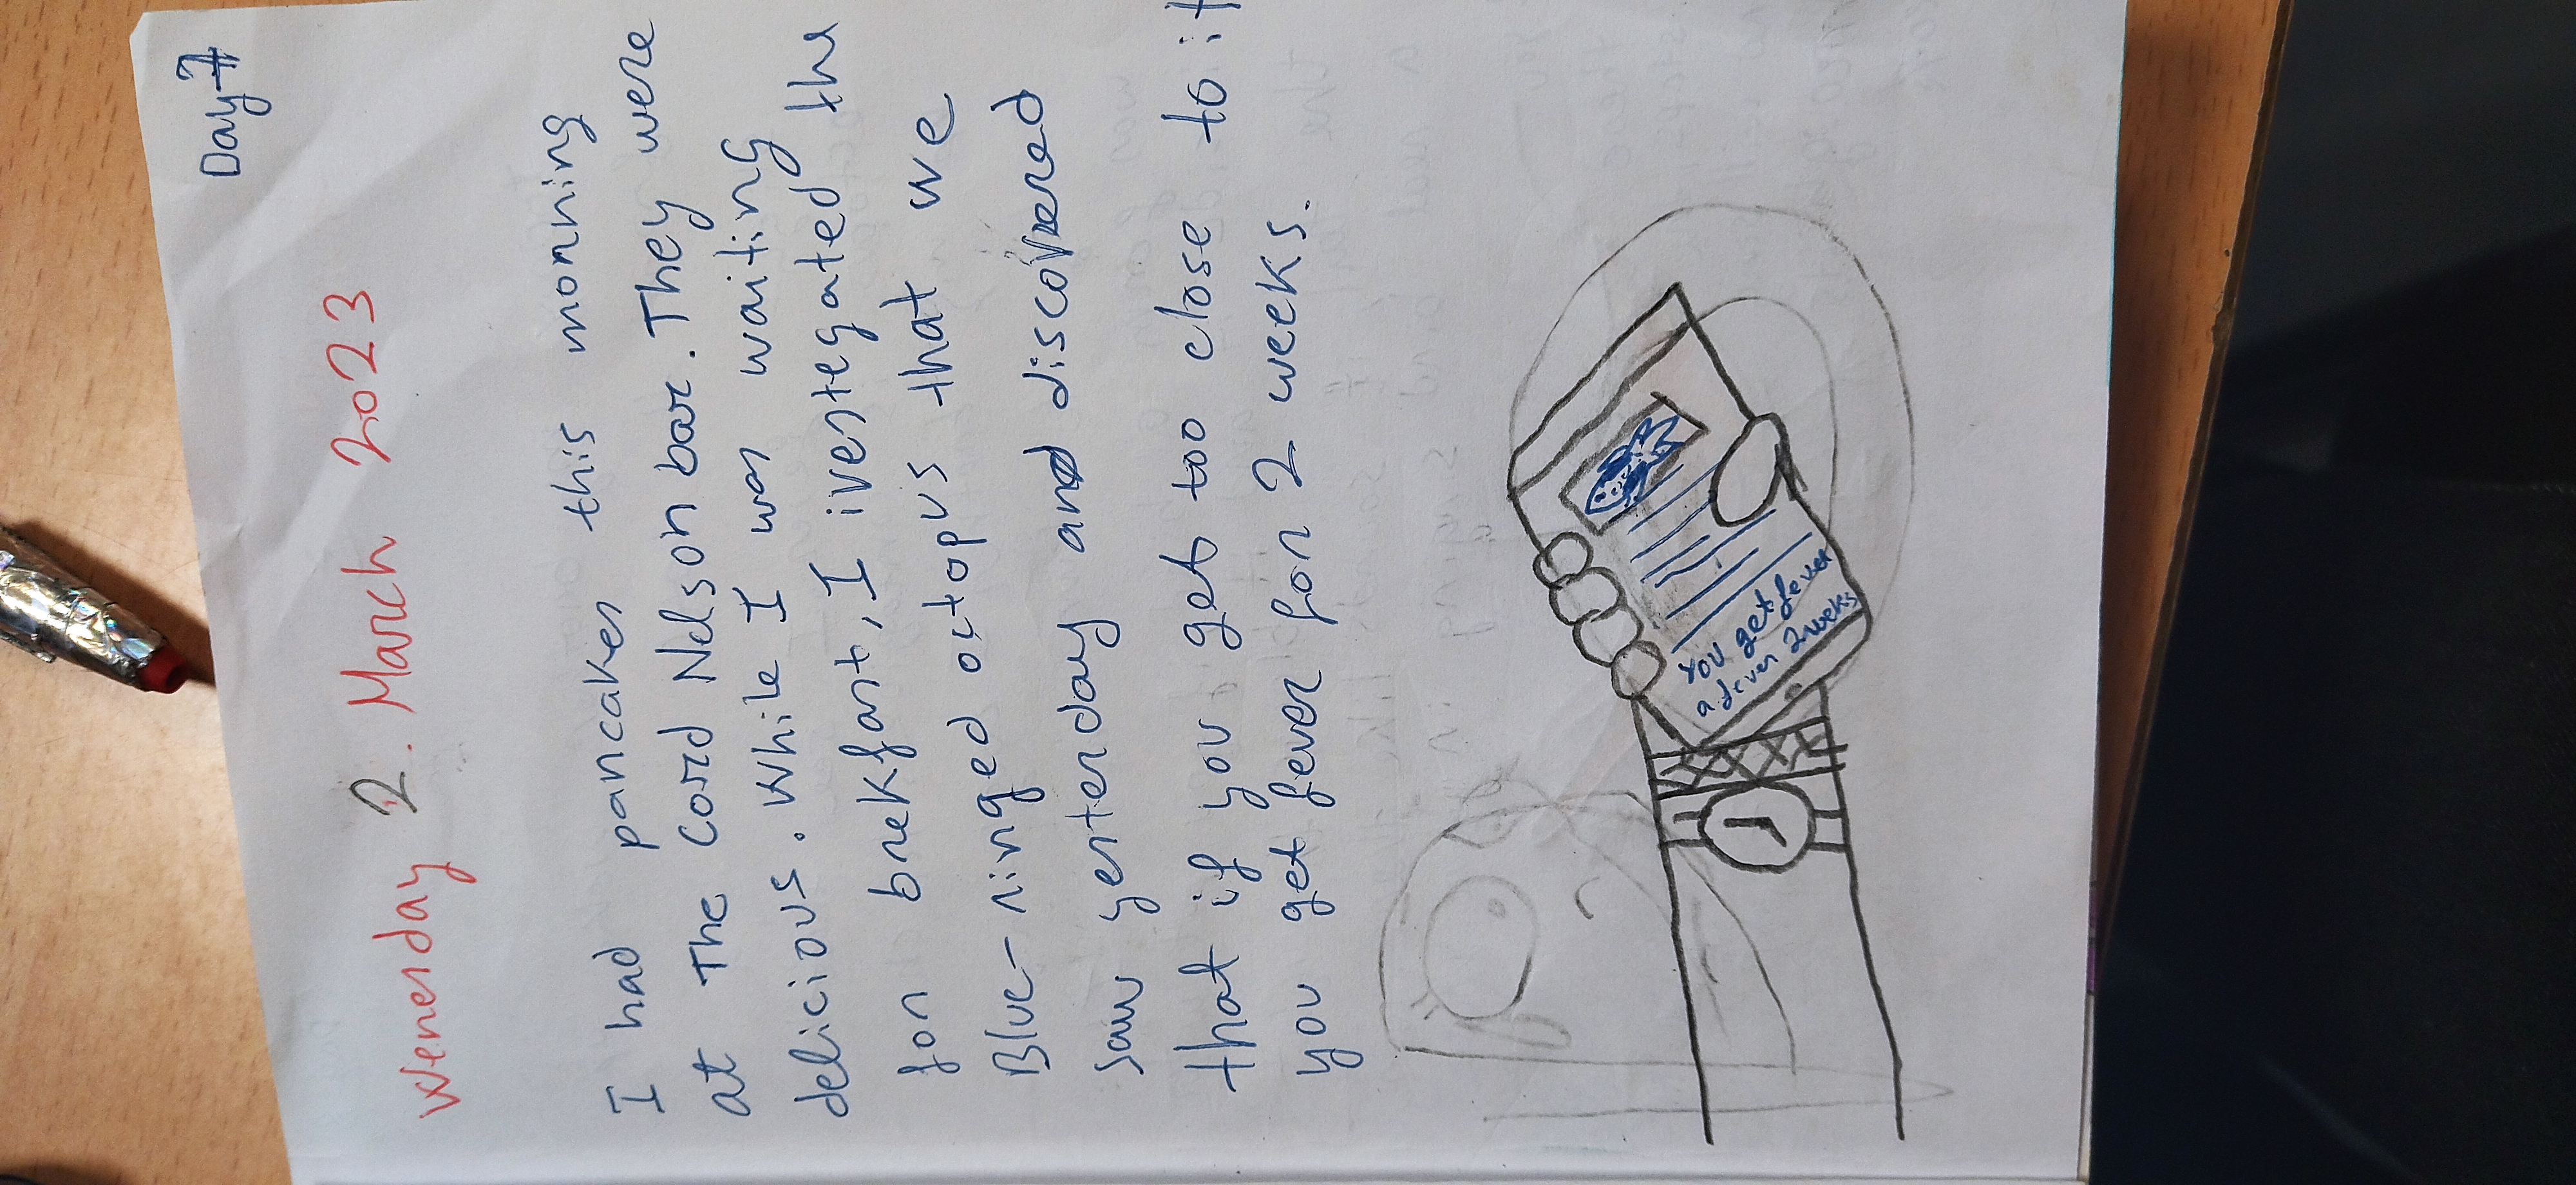 Day 7
Wenesday 2. March 2023
I had pancakes this morning
at The Cord Nelson bar. They were
delicious. While I was waiting
for brekfast, I ivestegated the
Blue-ringed octopus that we
saw yesterday and discovered
that if you get too close to it
you get fever for 2 weeks.
You get fever
2 weeks